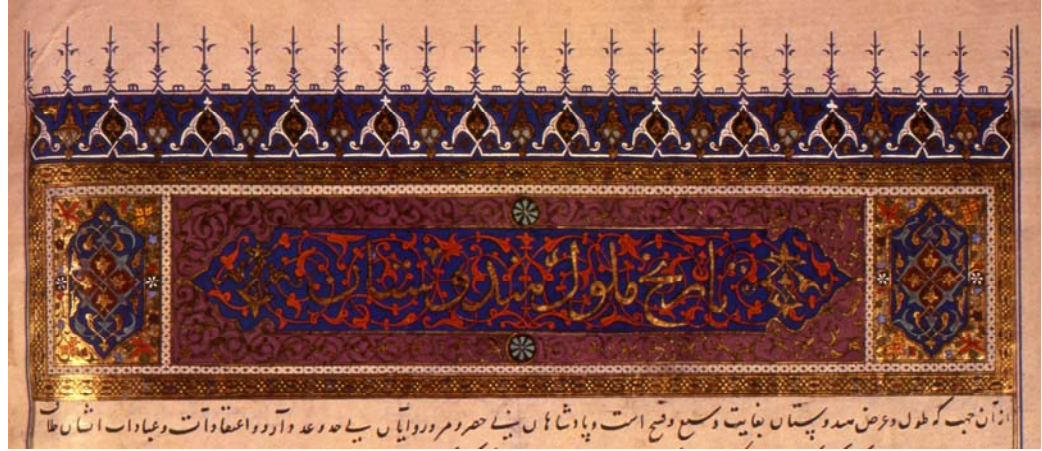 تاریخ ملوک هندوستان
از آن جهت که طول و عرض هندوستان بغایت وسیع و فسیح است و پادشاهان بی حصر و مر و رویان بی حد و عد دارد و اعتقادات و عبادات ایشان